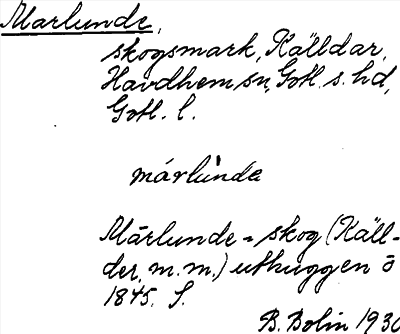 Marlunde,
skogsmark, Källdar,
Havdhem sn, Gotl. s. hd,
Gotl. l.
márlùnda
Mārlunde = skog (Käll-
der, m.m.) uthuggen ö
1845. S.
B. Bolin 1930